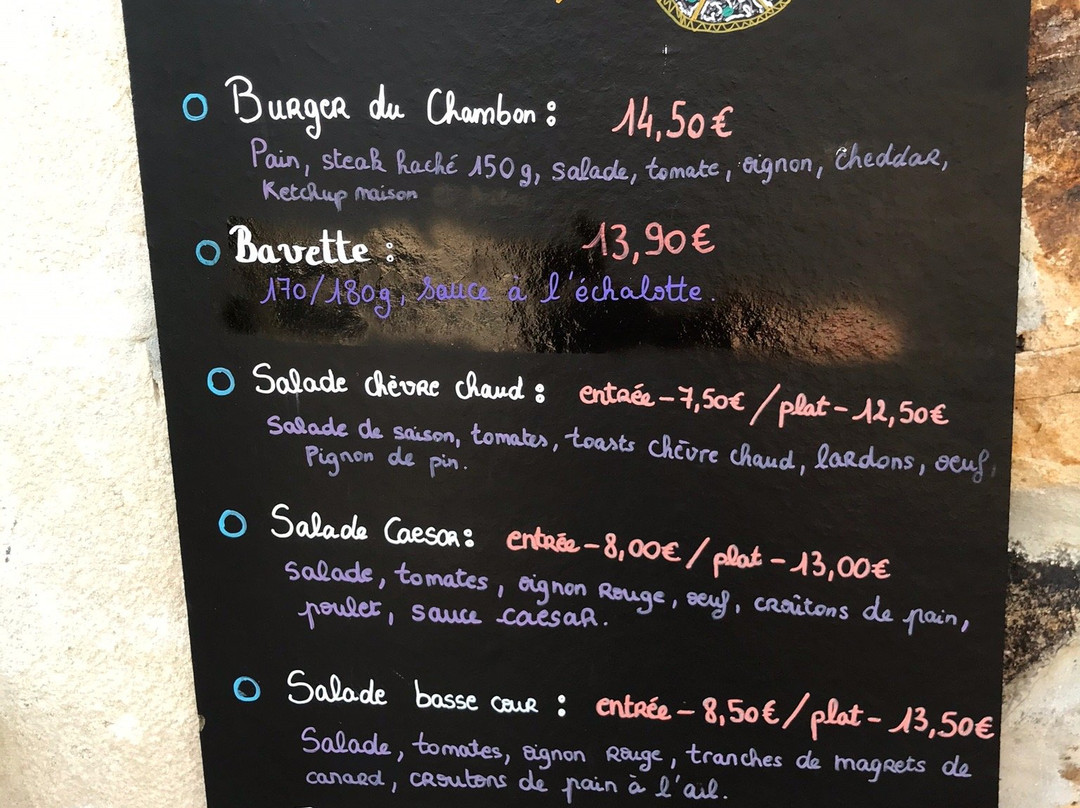 Burger du Chambon : 14,50€
Pain, steak haché 150g, salade, tomate, oignon, cheddar,
Ketchup maison
Bavette : 13,90€
170/180g, sauce à l'échalotte.
Salade chèvre chaud : entrée - 7,50€ / plat - 12,50€
Salade de saison, tomates, toasts chèvre chaud, lardons, oeuf,
Pignon de pin.
Salade Caesar : entrée - 8,00€ / plat - 13,00€
Salade, tomates, oignon Rouge, oeuf, croûtons de pain,
poulet, sauce caesar.
Salade basse cour : entrée - 8,50€ / plat - 13,50€
Salade, tomates, oignon Rouge, tranches de magrets de
canard, croutons de pain à l'ail.